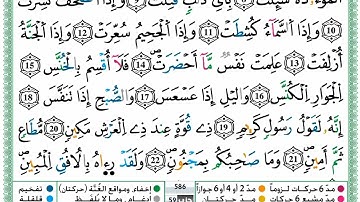 ٱلۡمَوۡءُۥدَةُ سُئِلَتۡ ٨ بِأَيِّ ذَنۢبٖ قُتِلَتۡ ٩ وَإِذَا ٱلصُّحُفُ نُشِرَتۡ
١٠ وَإِذَا ٱلسَّمَآءُ كُشِطَتۡ ١١ وَإِذَا ٱلۡجَحِيمُ سُعِّرَتۡ ١٢ وَإِذَا ٱلۡجَنَّةُ
أُزۡلِفَتۡ ١٣ عَلِمَتۡ نَفۡسٞ مَّآ أَحۡضَرَتۡ ١٤ فَلَآ أُقۡسِمُ بِٱلۡخُنَّسِ ١٥
ٱلۡجَوَارِ ٱلۡكُنَّسِ ١٦ وَٱلَّيۡلِ إِذَا عَسۡعَسَ ١٧ وَٱلصُّبۡحِ إِذَا تَنَفَّسَ ١٨
إِنَّهُۥ لَقَوۡلُ رَسُولٖ كَرِيمٖ ١٩ ذِي قُوَّةٍ عِندَ ذِي ٱلۡعَرۡشِ مَكِينٖ ٢٠ مُّطَاعٖ
ثَمَّ أَمِينٖ ٢١ وَمَا صَاحِبُكُم بِمَجۡنُونٖ ٢٢ وَلَقَدۡ رَءَاهُ بِٱلۡأُفُقِ ٱلۡمُبِينِ
مدّ 6 حركات لزوماً مدّ 2 أو 4 أو 6 جوازاً 586 إخفاء، ومواقع الغُنَّة (حركتان) تفخيم
مدّ مشبع 6 حركات مدّ حركتان 59 إدغام، وما لا يُلفَظ قلقلة